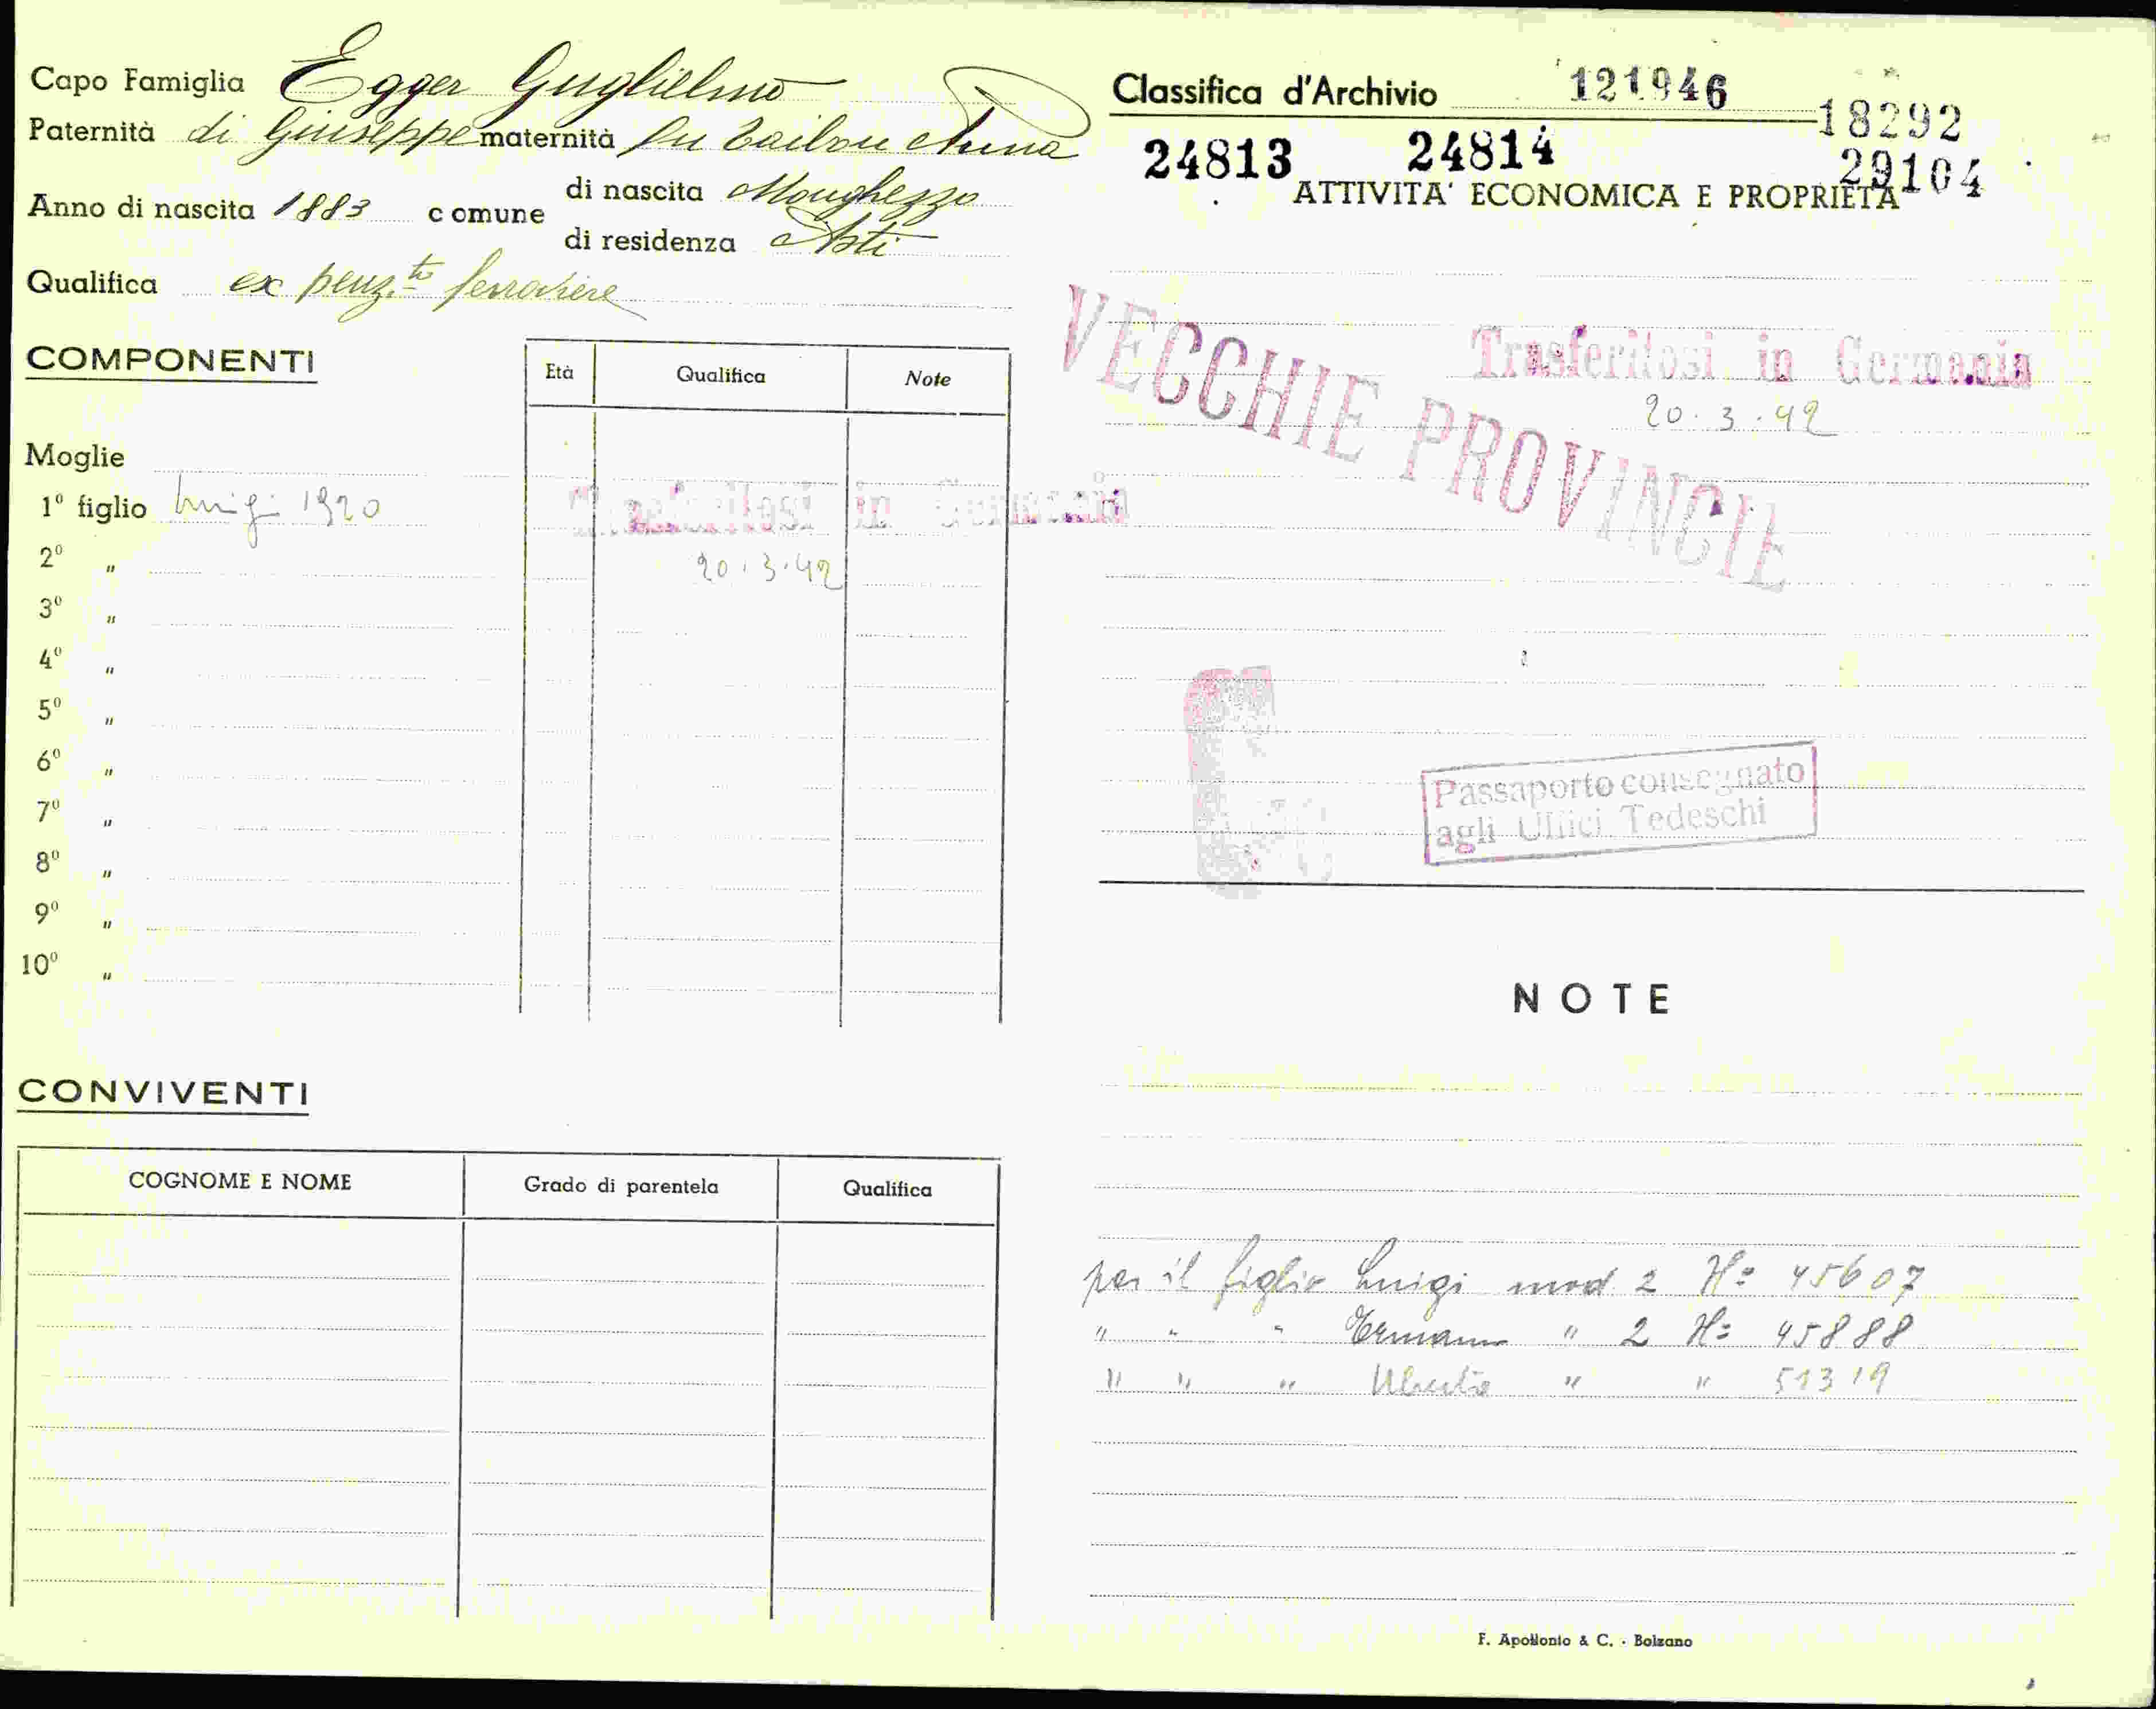 Capo Famiglia Egger Guglielmo
Paternità di Giuseppe maternità fu Anna
Anno di nascita 1883 comune di nascita Monghezzo
di residenza Asti
Qualifica ex penz.to ferroviere
COMPONENTI
Età Qualifica Note
Moglie
1º figlio Luigi 1920 Trasferitosi in Germania
2º " 20.3.42
3º "
4º "
5º "
6º "
7º "
8º "
9º "
10º "
CONVIVENTI
COGNOME E NOME Grado di parentela Qualifica
Classifica d'Archivio 121946
18292
24813 24814 29104
ATTIVITA' ECONOMICA E PROPRIETÀ
VECCHIE PROVINCIE
Trasferitosi in Germania
20.3.42
Passaporto consegnato
agli Uffici Tedeschi
NOTE
per il figlio Luigi mod. 2 Nº 45607
" " " Ermann " 2 Nº 45888
" " " " " 51319
F. Apollonio & C. - Bolzano